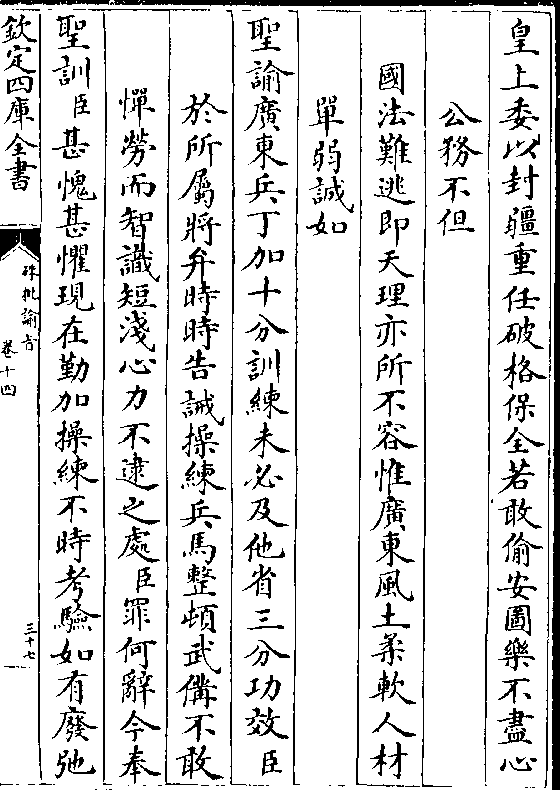 皇上委以封疆重任破格保全若敢偷安圖樂不盡心
公務不但
國法難逃即天理亦所不容惟廣東風土柔軟人材
單弱誠如
聖諭廣東兵丁加十分訓練未必及他省三分功效臣
於所屬將弁時時告誡操練兵馬整頓武備不敢
憚勞而智識短淺心力不逮之處臣罪何辭今奉
聖訓臣甚愧甚懼現在勤加操練不時考驗如有廢弛
欽定四庫全書
硃批諭旨
卷十四
三十七